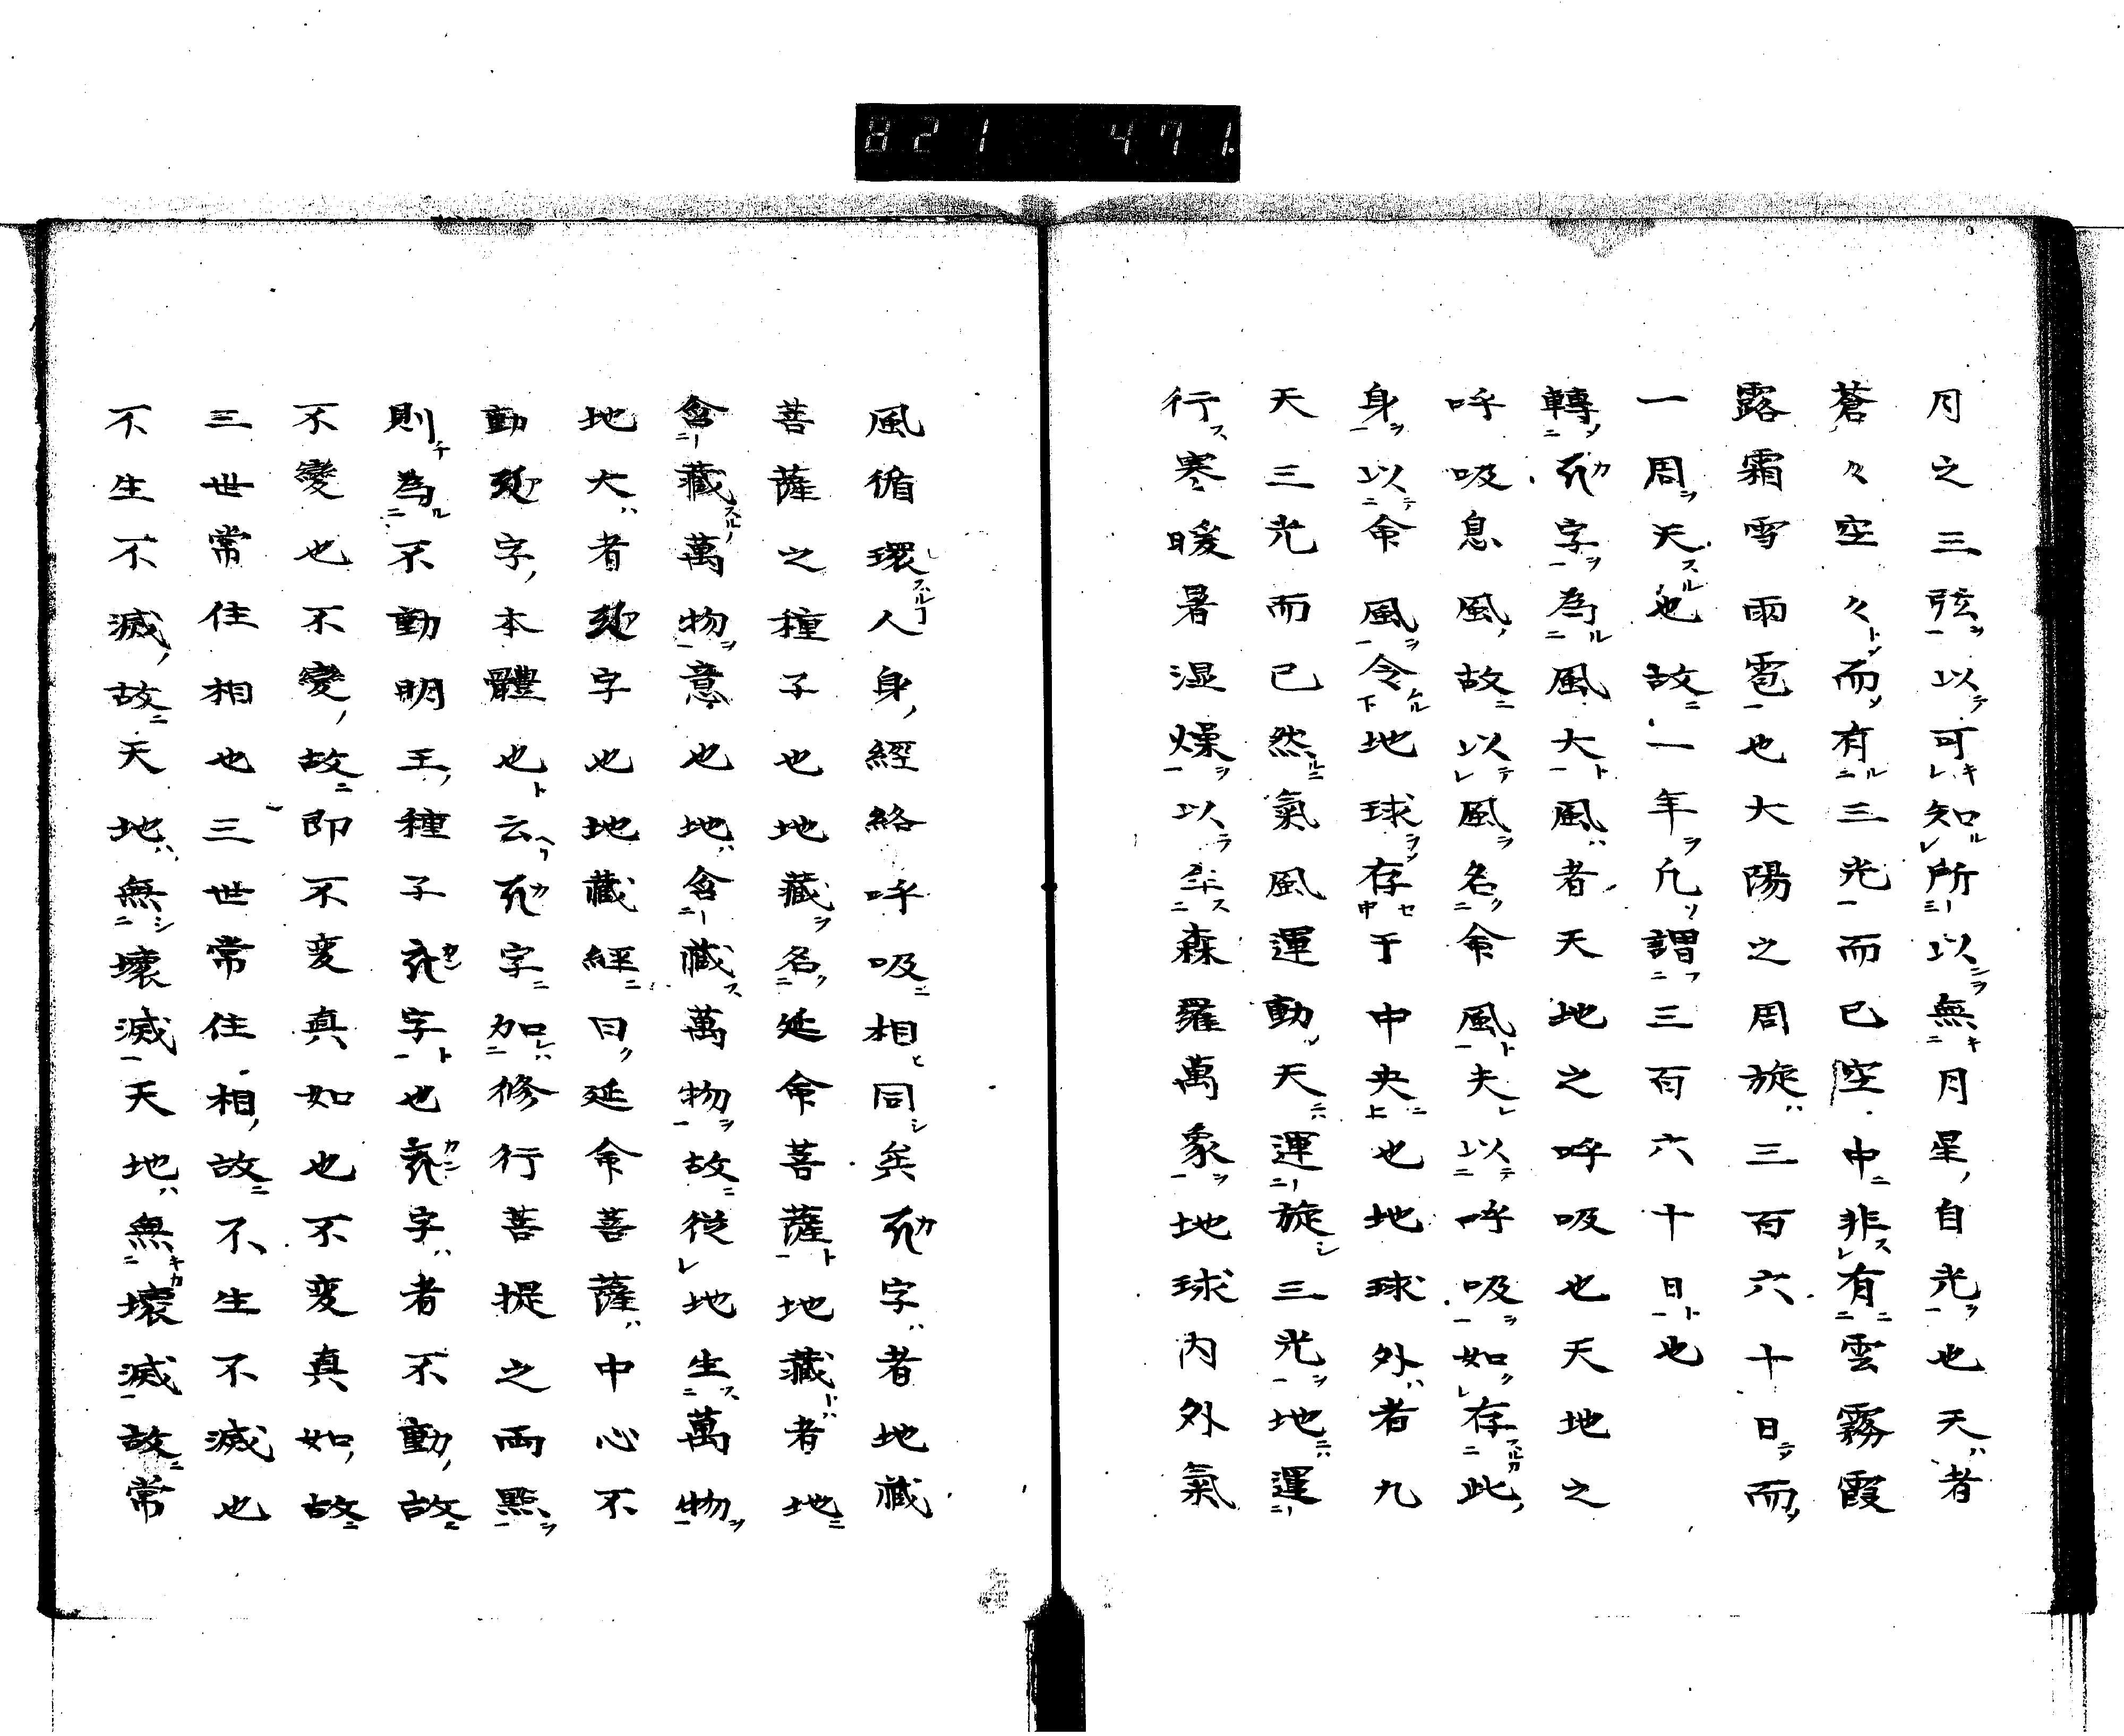 821 471.
月之三弦以可知所以無月星自光也天者
蒼々空々而有三光而已空中非有雲霧霞
露霜雪雨雹也大陽之周旋三百六十日而
一周天也故一年凡謂三百六十日也
轉字為風大風者天地之呼吸也天地之
呼吸息風故以風名命風夫以呼吸如存此
身以命風令地球存于中央也地球外者九
天三光而已然氣風運動天運旋三光地運
行寒暖暑湿燥以森羅萬象地球内外氣
風循環人身經絡呼吸相同矣字者地藏
菩薩之種子也地藏名延命菩薩地藏者地
含藏萬物意也地含藏萬物故從地生萬物
地大者字也地藏經曰延命菩薩中心不
動字本體也云字加修行菩提之両點
則為不動明王種子字也字者不動故
不變也不變故即不変真如也不変真如故
三世常住相也三世常住相故不生不滅也
不生不滅故天地無壞滅天地無壞滅故常